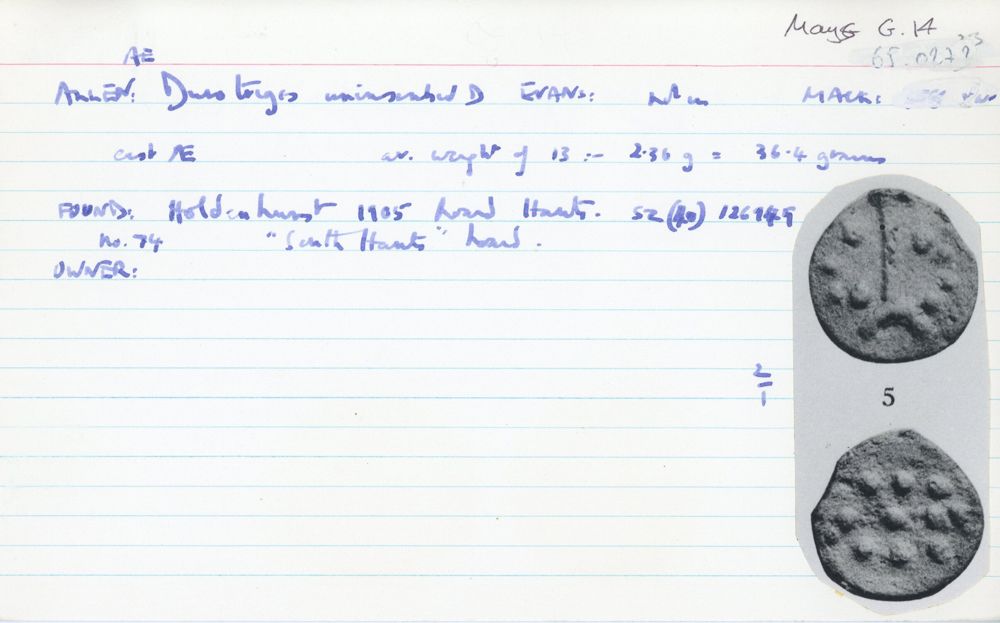 Mays G. 14
65.0272
AE
ALLEN: Durotriges uninscribed D EVANS: not in MACK:
cast AE av. weight of 13 :- 2.36 g = 36.4 grains
FOUND: Holdenhurst 1905 hoard Hants. SZ (40) 126949
no. 74 "South Hants" hoard.
OWNER:
2
1
5